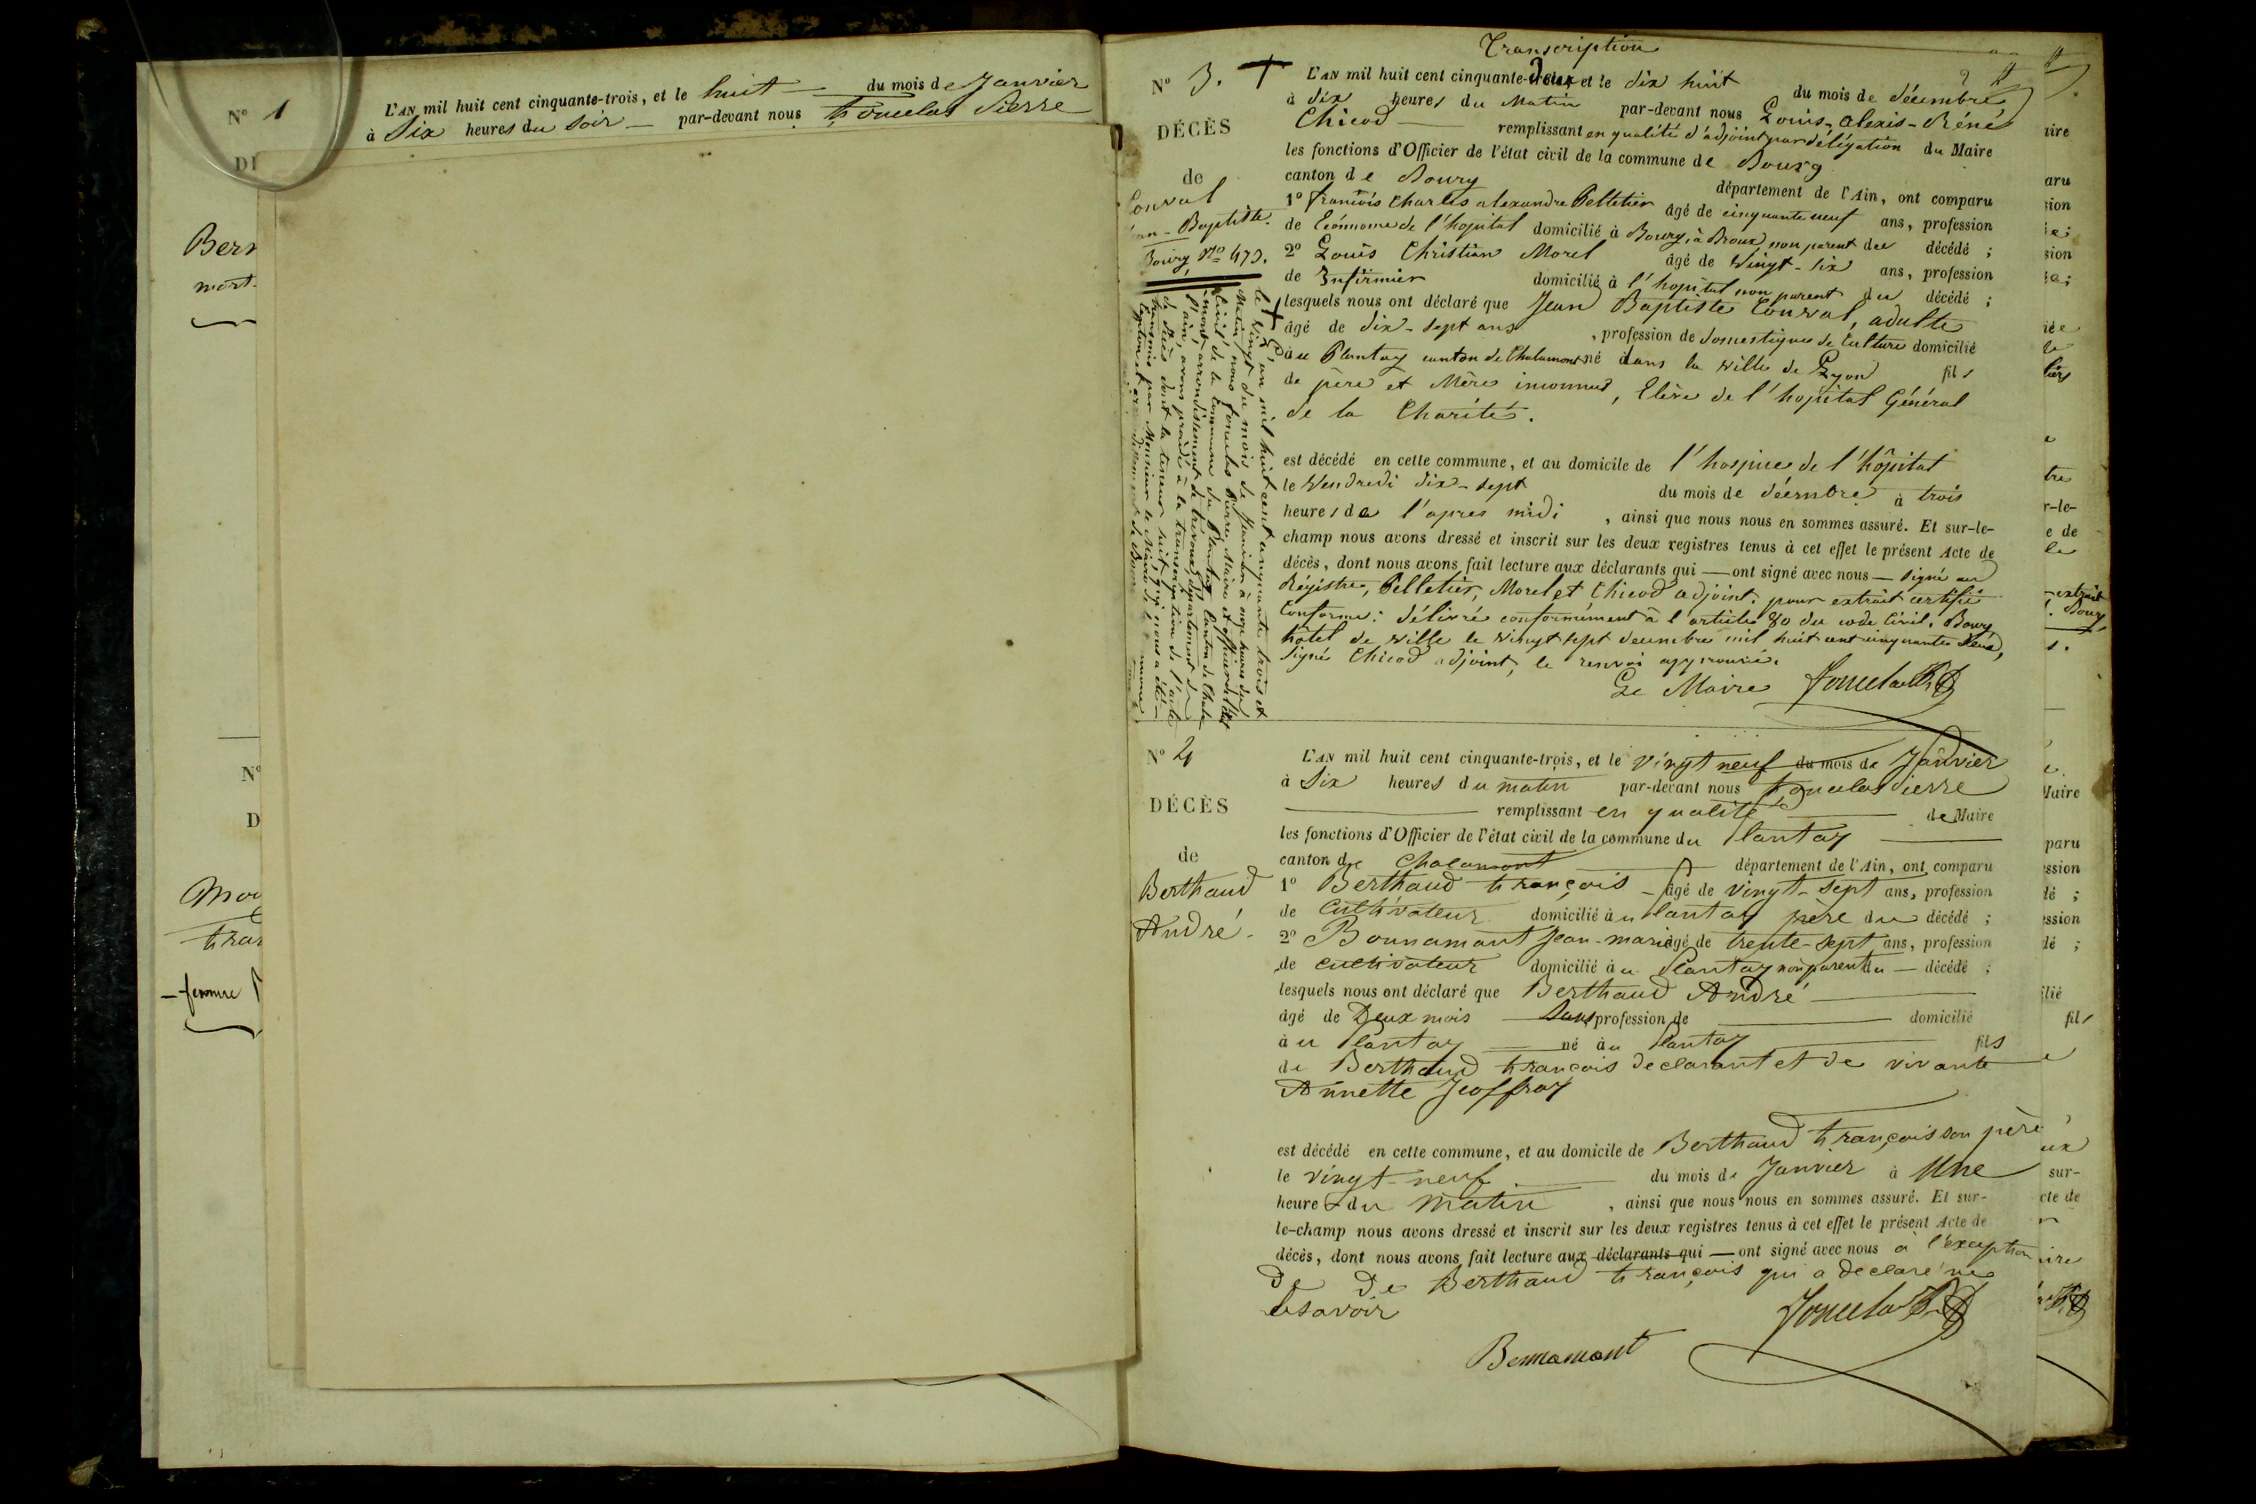 N° 1
L'AN mil huit cent cinquante-trois, et le huit du mois de Janvier
à Six heures du Soir par-devant nous Pierre
Transcription
N° 3.
DÉCÈS
de
Bourg, N° 473.
L'AN mil huit cent cinquante-deux et le dix huit du mois de décembre
à dix heures du Matin par-devant nous Louis-Alexis-Réné
Chicod remplissant en qualité d'adjoint par délégation du Maire
les fonctions d'Officier de l'état civil de la commune de Bourg
canton de Bourg département de l'Ain, ont comparu
1° François Charles alexandre Pelletier âgé de cinquante neuf ans, profession
de Econnome de l'hopital domicilié à Bourg, à Brou, non parent du décédé ;
2° Louis Christian Morel âgé de Vingt-six ans, profession
de Infirmier domicilié à l'hopital non parent du décédé ;
lesquels nous ont déclaré que Jean Baptiste Conval, adulte
âgé de dix-sept ans, profession de domestique de culture domicilié
au Plantay canton de Chalamont né dans la ville de Lyon fils
de père et Mère inconnus, Elève de l'hopital Général
de la Charité.
est décédé en cette commune, et au domicile de l'hospice de l'hôpital
le Vendredi dix-sept du mois de décembre à trois
heures de l'apres midi, ainsi que nous nous en sommes assuré. Et sur-le-
champ nous avons dressé et inscrit sur les deux registres tenus à cet effet le présent Acte de
décès, dont nous avons fait lecture aux déclarants qui ont signé avec nous signé au
Régistre, Pelletier, Morel et Chicod adjoint. pour extrait certifié
Conforme: délivré conformément à l'article 80 du code Civil. Bourg
hôtel de Ville le vingt sept decembre mil huit cent cinquante deux,
Signé Chicod adjoint, le renvoi approuvé.
Le Maire
L'an mil huit cent cinquante trois et
le vingt du mois de Janvier à onze heures du
Matin, nous Pierre, Maire et officier de l'état
civil de la Commune du Plantay Canton de Chala-
mont arrondissement de trevoux, département de
l'ain, avons procédé à la transcription de l'acte
de décès dont la teneur suit, qui nous a été
transmis par Monsieur le Maire de
N° 4
DÉCÈS
de
Berthaud
André.
L'AN mil huit cent cinquante-trois, et le vingt neuf du mois de Janvier
à Six heures du matin par-devant nous Pierre
remplissant en qualité de Maire
les fonctions d'Officier de l'état civil de la commune du Plantay
canton de Chalamont département de l'Ain, ont comparu
1° Berthaud François âgé de vingt-sept ans, profession
de cultivateur domicilié au Plantay père du décédé ;
2° Bonnamant Jean-marie âgé de trente-sept ans, profession
de cultivateur domicilié au Plantay non parent du décédé ;
lesquels nous ont déclaré que Berthaud André
âgé de Deux mois Sans profession de domicilié
au Plantay né au Plantay fils
de Berthaud François declarant et de vivante
Annette Jeoffray
est décédé en cette commune, et au domicile de Berthaud François son père
le vingt-neuf du mois de Janvier à Une
heure du matin, ainsi que nous nous en sommes assuré. Et sur-
le-champ nous avons dressé et inscrit sur les deux registres tenus à cet effet le présent Acte de
décès, dont nous avons fait lecture aux déclarants qui ont signé avec nous à l'exception
De De Berthaud François qui a declaré ne
le savoir
Bonnamant